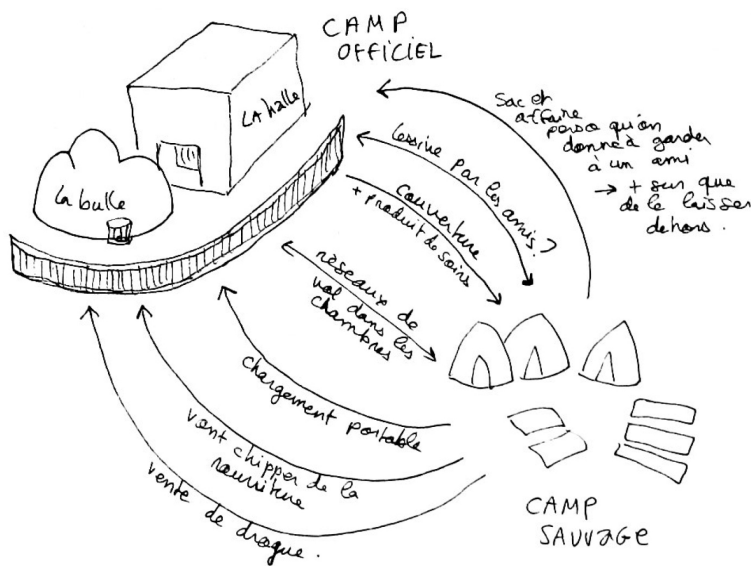 CAMP
OFFICIEL
LA halle
La bulle
Sac et
affaire
perso qu'on
donne à garder
à un ami
→ + sur que
de le laisser
dehors.
lessive par les amis ?
couverture
+ produit de soins
réseaux de
vol dans les
chambres
chargement portable
vont chipper de la
nourriture
vente de drogue.
CAMP
SAUVAGE